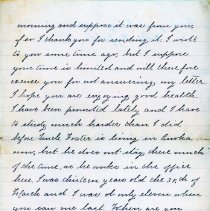 morning and suppose it was from you,
if so I thank you for sending it. I wrote
to you some time ago, but I suppose
your time is limited and will therefore
excuse you for not answering my letter.
I hope you are enjoying good health.
I have been promoted lately and I have
to study much harder than I did
before. Uncle Foster is living in Eureka
now, but he does not stay there much
of the time, as he works in the office
here. I was thirteen years old the 28th of
March and I was only eleven when
you saw me last. When are you